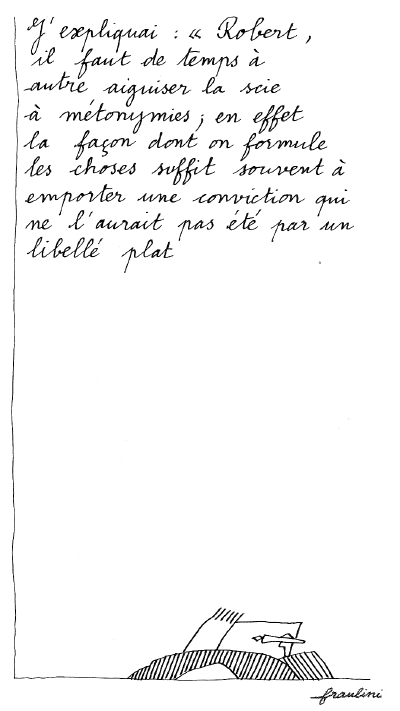 J'expliquai : « Robert,
il faut de temps à
autre aiguiser la scie
à métonymies ; en effet
la façon dont on formule
les choses suffit souvent à
emporter une conviction qui
ne l'aurait pas été par un
libellé plat
fraulini